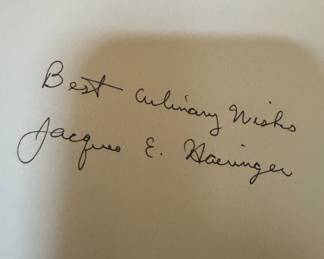 Best Culinary Wishes
Jacques E. Haeringer